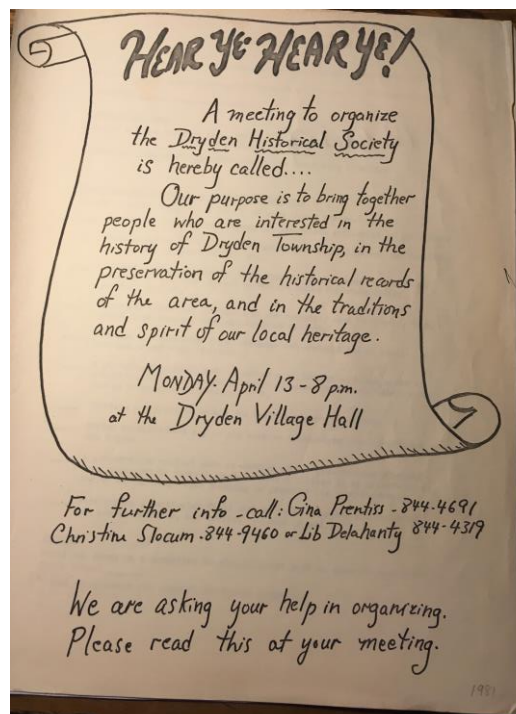 HEAR YE HEAR YE!
A meeting to organize
the Dryden Historical Society
is hereby called....
Our purpose is to bring together
people who are interested in the
history of Dryden Township, in the
preservation of the historical records
of the area, and in the traditions
and spirit of our local heritage.
MONDAY. April 13 - 8 p.m.
at the Dryden Village Hall
For further info - call: Gina Prentiss - 844-4691
Christine Slocum - 844-9460 or Lib Delahanty 844-4319
We are asking your help in organizing.
Please read this at your meeting.
1981